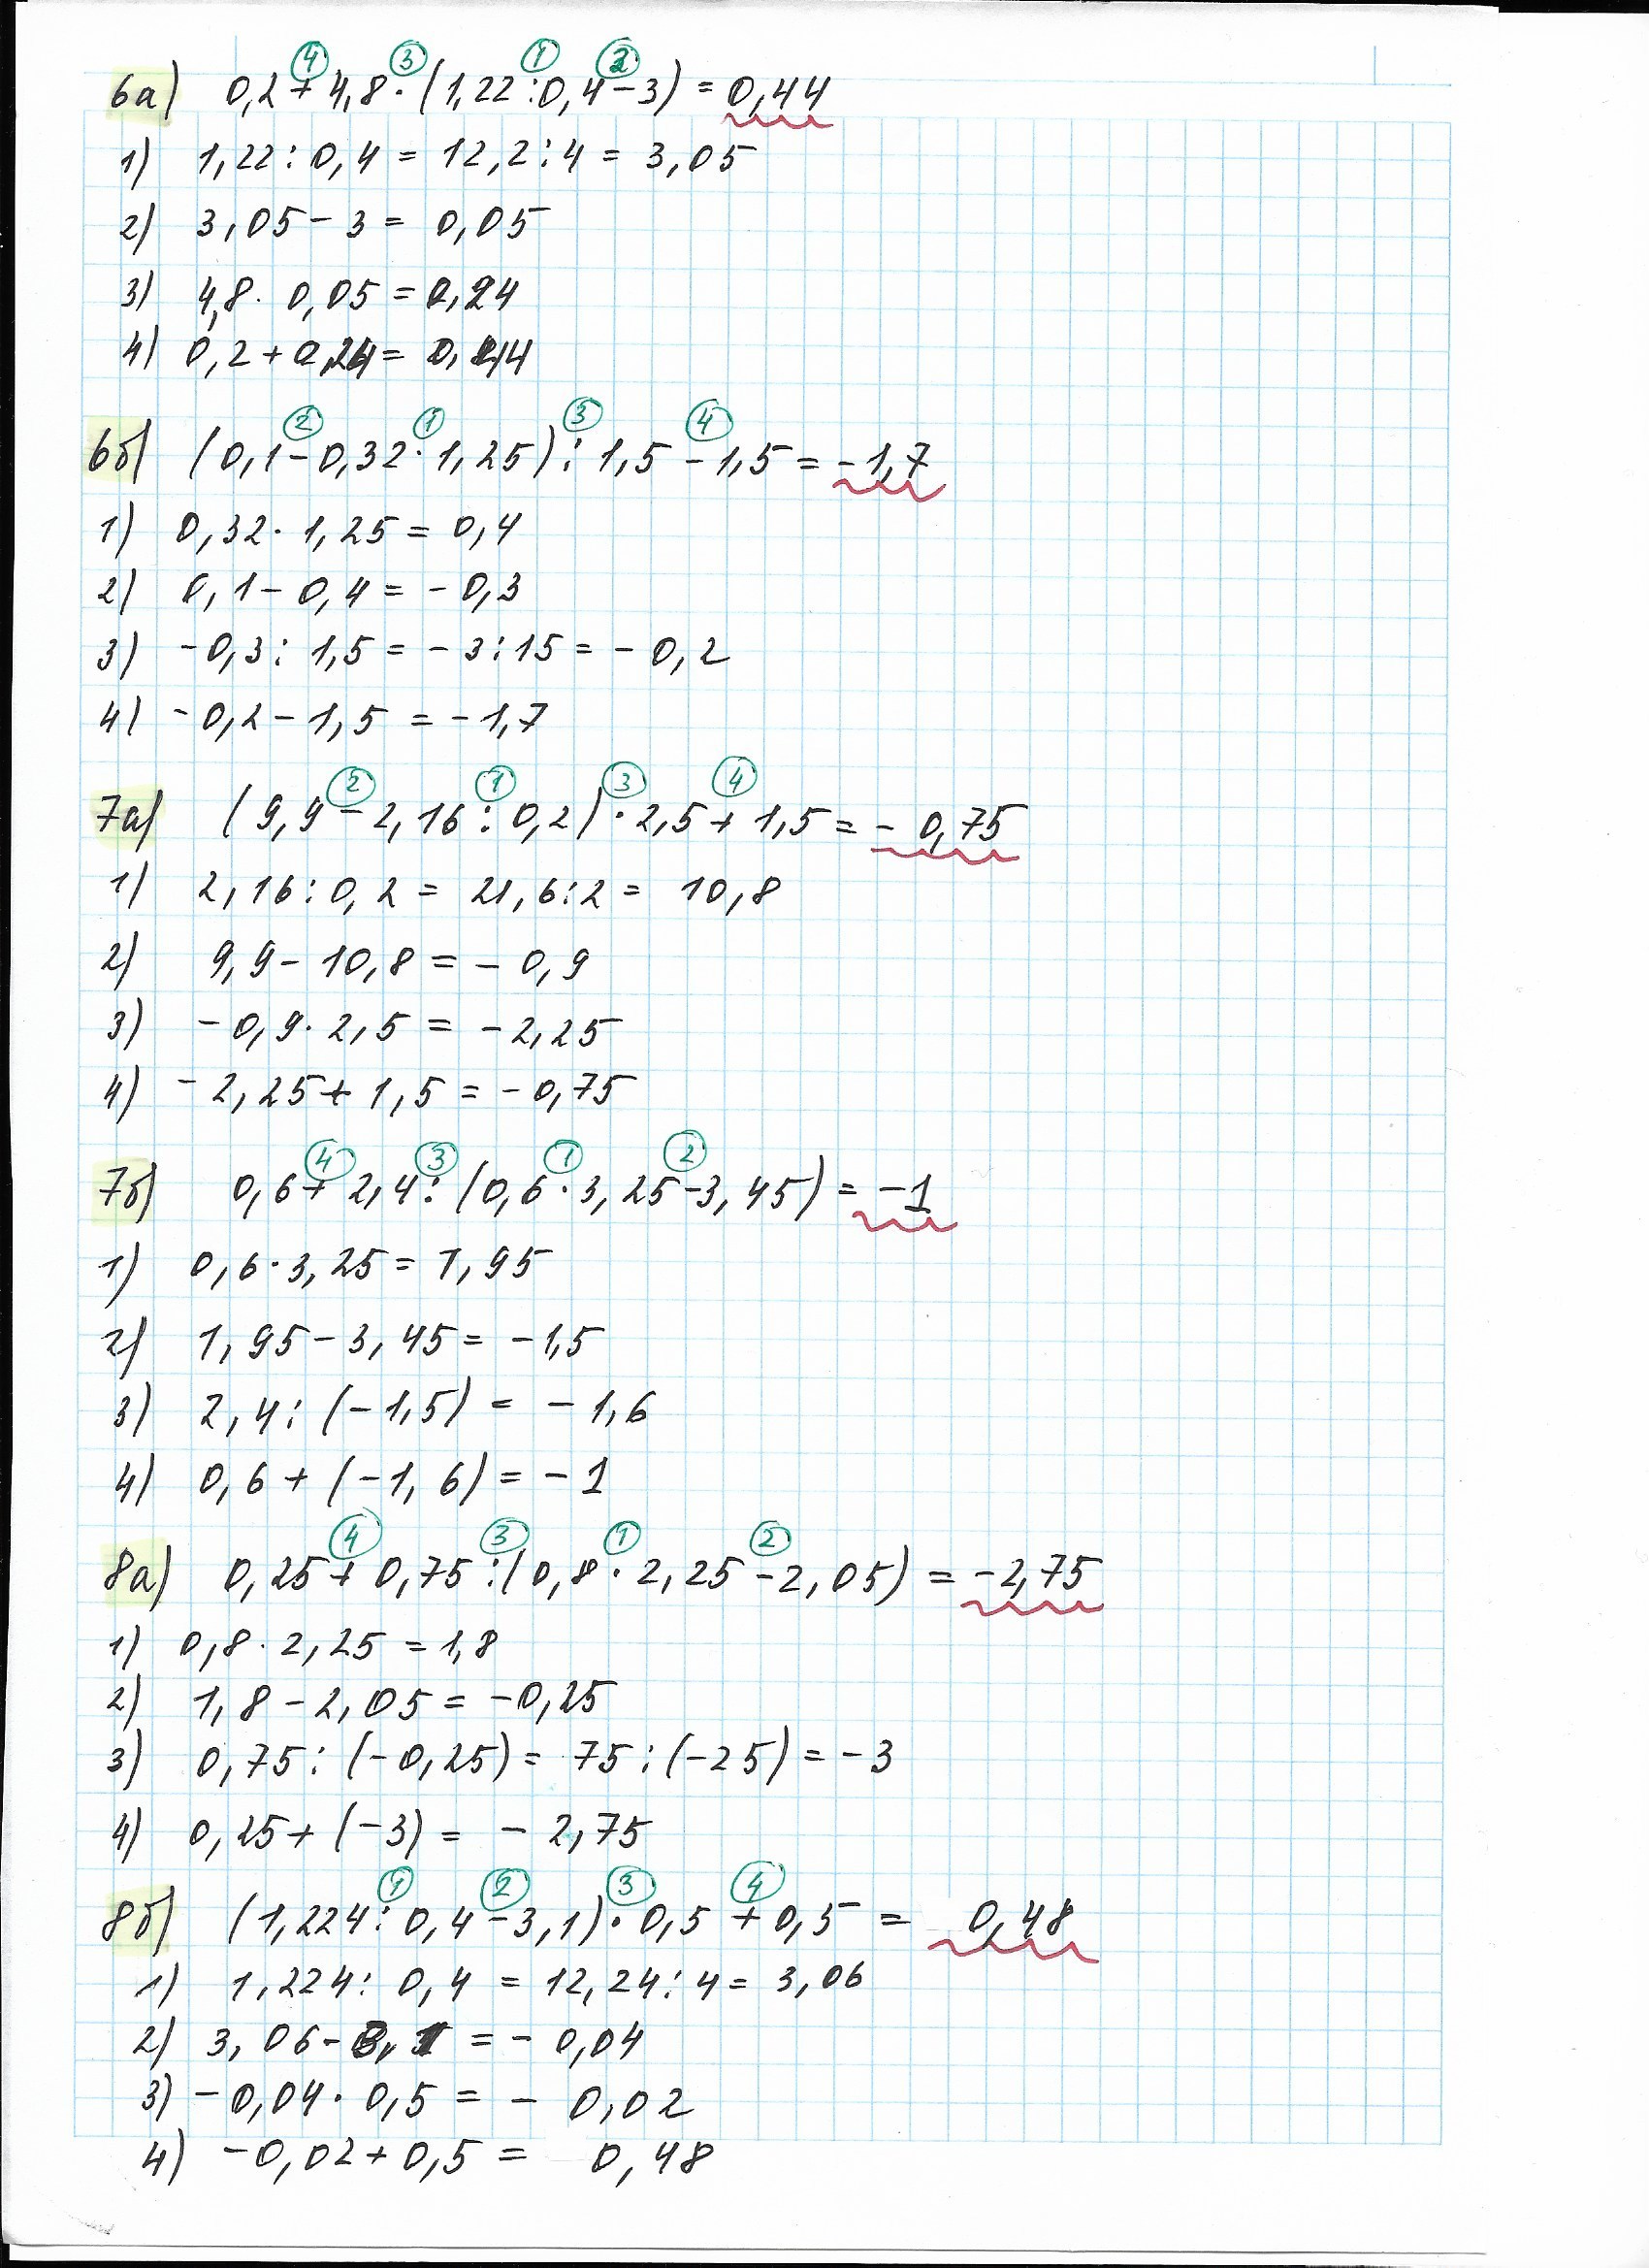 ④ ③ ① ②
6а) 0,2+4,8·(1,22:0,4-3) = 0,44
1) 1,22:0,4 = 12,2:4 = 3,05
2) 3,05-3 = 0,05
3) 4,8·0,05 = 0,24
4) 0,2+0,24 = 0,44
② ① ③ ④
6б) (0,1-0,32·1,25):1,5-1,5 = -1,7
1) 0,32·1,25 = 0,4
2) 0,1-0,4 = -0,3
3) -0,3:1,5 = -3:15 = -0,2
4) -0,2-1,5 = -1,7
② ① ③ ④
7а) (9,9-2,16:0,2)·2,5+1,5 = -0,75
1) 2,16:0,2 = 21,6:2 = 10,8
2) 9,9-10,8 = -0,9
3) -0,9·2,5 = -2,25
4) -2,25+1,5 = -0,75
④ ③ ① ②
7б) 0,6+2,4:(0,6·3,25-3,45) = -1
1) 0,6·3,25 = 1,95
2) 1,95-3,45 = -1,5
3) 2,4:(-1,5) = -1,6
4) 0,6+(-1,6) = -1
④ ③ ① ②
8а) 0,25+0,75:(0,8·2,25-2,05) = -2,75
1) 0,8·2,25 = 1,8
2) 1,8-2,05 = -0,25
3) 0,75:(-0,25) = 75:(-25) = -3
4) 0,25+(-3) = -2,75
① ② ③ ④
8б) (1,224:0,4-3,1)·0,5+0,5 = 0,48
1) 1,224:0,4 = 12,24:4 = 3,06
2) 3,06-3,1 = -0,04
3) -0,04·0,5 = -0,02
4) -0,02+0,5 = 0,48